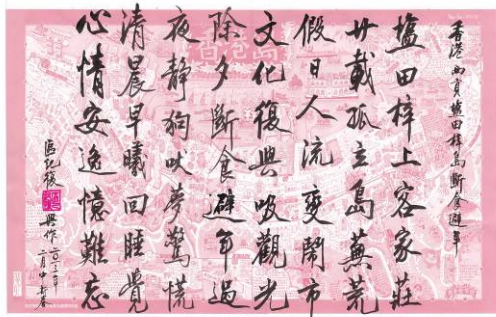 香港西貢鹽田梓島斷食避年
鹽田梓上客家莊
廿載孤立島蕪荒
假日人流變鬧市
文化復興吸觀光
除夕斷食避年過
夜靜狗吠夢驚慌
清晨早曦回睡覺
心情安逸憶難忘
區紀復
興作
二月中